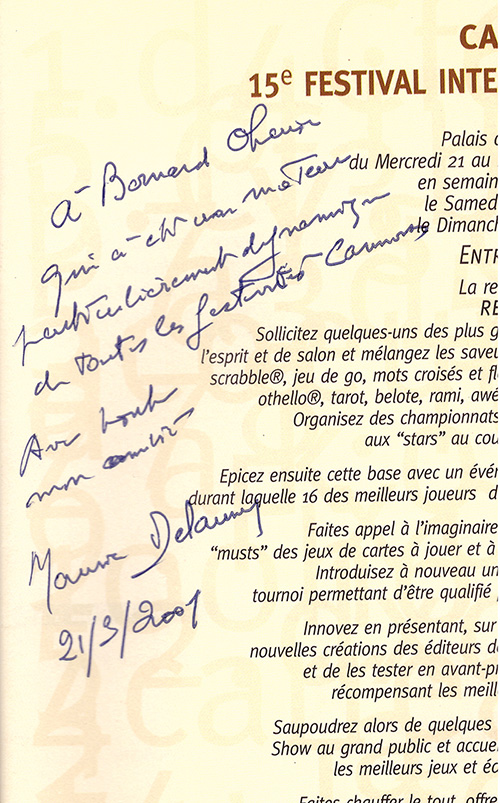 CA
15e FESTIVAL INTE
Palais
du Mercredi 21 au
en semain
le Samed
le Dimanch
ENTR
La re
RE
Sollicitez quelques-uns des plus g
l'esprit et de salon et mélangez les saveu
scrabble®, jeu de go, mots croisés et fl
othello®, tarot, belote, rami, awé
Organisez des championnats
aux "stars" au cou
Epicez ensuite cette base avec un évén
durant laquelle 16 des meilleurs joueurs d
Faites appel à l'imaginaire
"musts" des jeux de cartes à jouer et à
Introduisez à nouveau un
tournoi permettant d'être qualifié
Innovez en présentant, sur
nouvelles créations des éditeurs d
et de les tester en avant-pr
récompensant les meill
Saupoudrez alors de quelques
Show au grand public et accue
les meilleurs jeux et éc
Faites chauffer le tout, offre
à Bernard
qui a été un moteur
particulièrement dynamique
de toutes les festivités Cannoises
Avec toute
mon amitié
Maurice Delaunay
21/3/2001